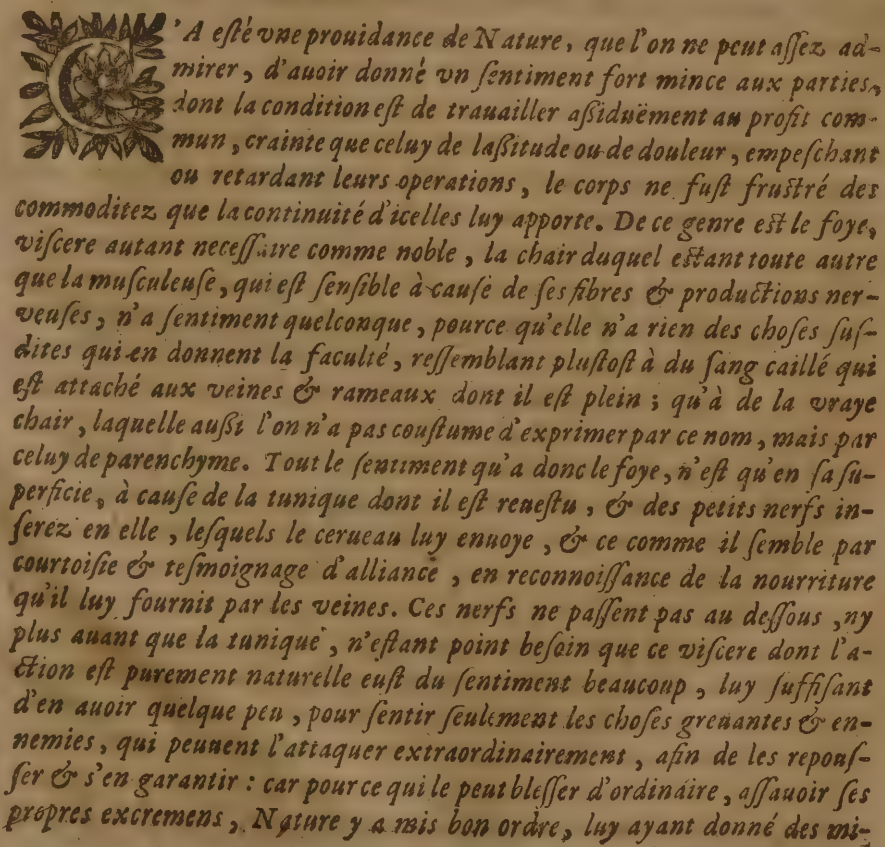 C'A esté vne prouidance de Nature, que l'on ne peut assez ad-
mirer, d'auoir donné vn sentiment fort mince aux parties,
dont la condition est de trauailler assiduëment au profit com-
mun, crainte que celuy de lassitude ou de douleur, empeschant
ou retardant leurs operations, le corps ne fust frustré des
commoditez que la continuité d'icelles luy apporte. De ce genre est le foye,
viscere autant necessaire comme noble, la chair duquel estant toute autre
que la musculeuse, qui est sensible à cause de ses fibres & productions ner-
veuses, n'a sentiment quelconque, pource qu'elle n'a rien des choses sus-
dites qui en donnent la faculté, ressemblant plustost à du sang caillé qui
est attaché aux veines & rameaux dont il est plein; qu'à de la vraye
chair, laquelle aussi l'on n'a pas coustume d'exprimer par ce nom, mais par
celuy de parenchyme. Tout le sentiment qu'a donc le foye, n'est qu'en sa su-
perficie, à cause de la tunique dont il est reuestu, & des petits nerfs in-
serez en elle, lesquels le cerueau luy enuoye, & ce comme il semble par
courtoisie & tesmoignage d'alliance, en reconnoissance de la nourriture
qu'il luy fournit par les veines. Ces nerfs ne passent pas au dessous, ny
plus auant que la tunique, n'estant point besoin que ce viscere dont l'a-
ction est purement naturelle eust du sentiment beaucoup, luy suffisant
d'en auoir quelque peu, pour sentir seulement les choses greuantes & en-
nemies, qui peuuent l'attaquer extraordinairement, afin de les repous-
ser & s'en garantir: car pour ce qui le peut blesser d'ordinaire, assauoir ses
propres excremens, Nature y a mis bon ordre, luy ayant donné des mi-